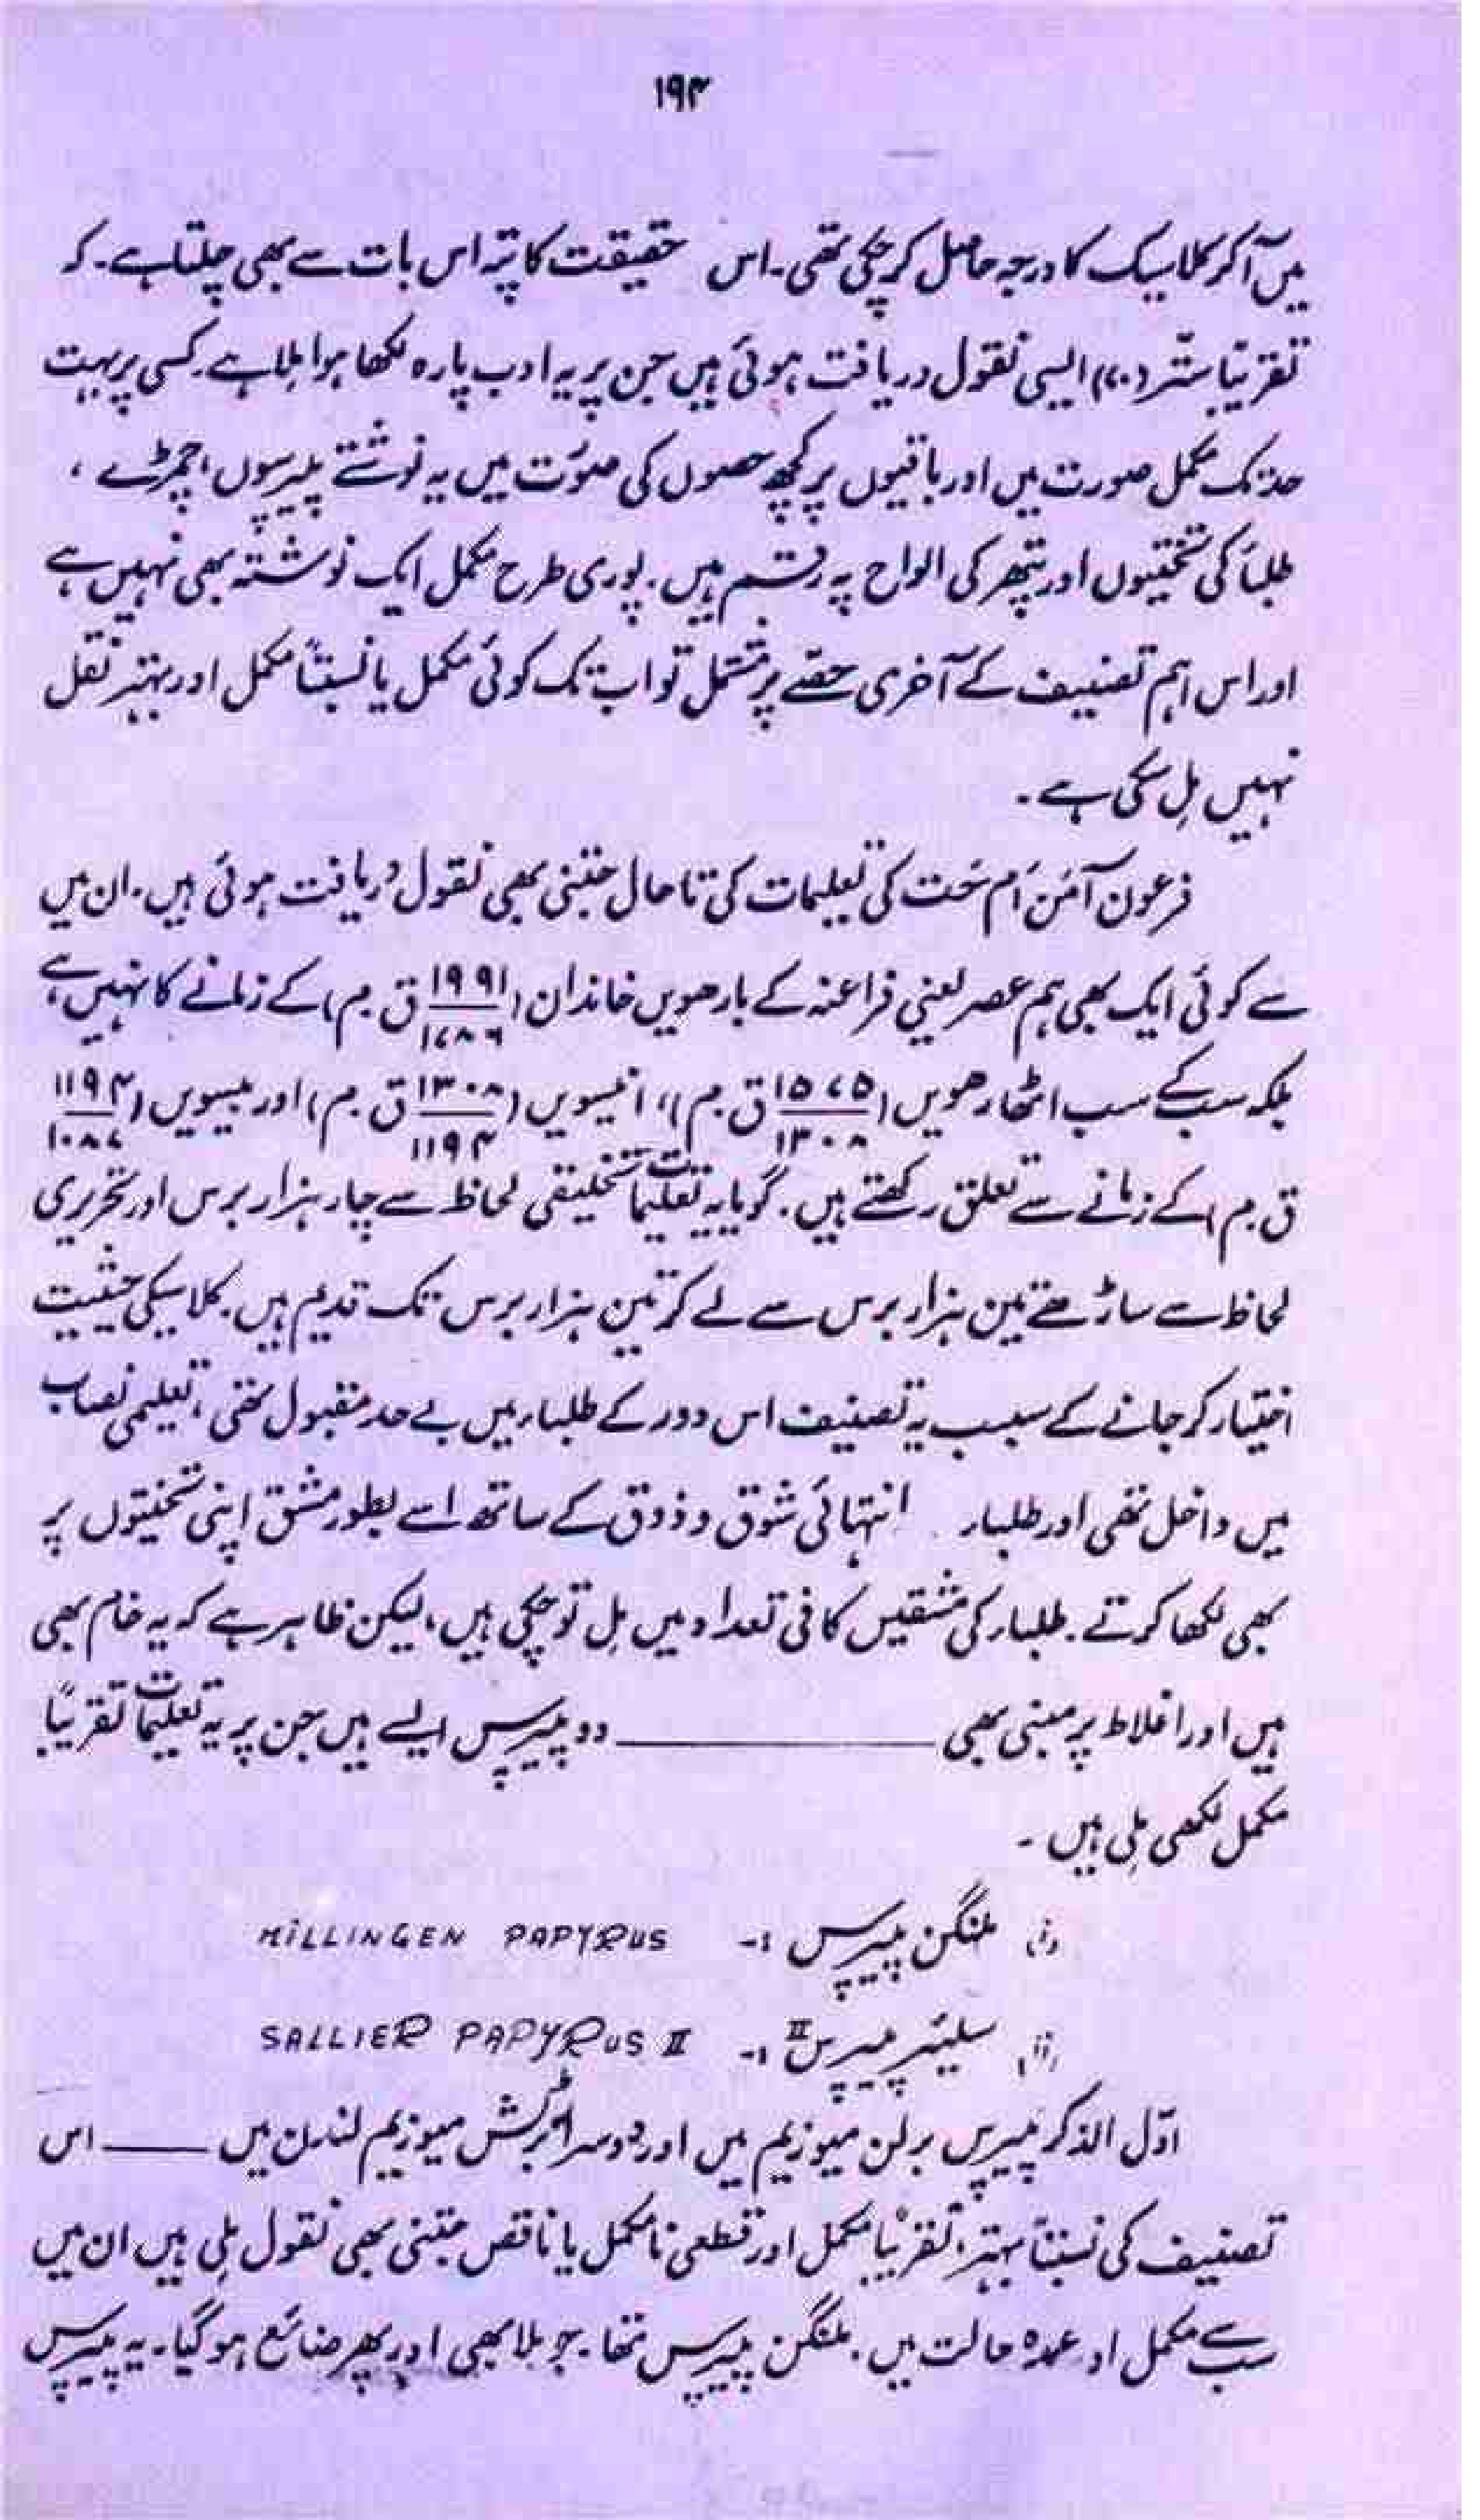 ۱۹۴
میں آکر کلاسیک کا درجہ حاصل کر چکی تھی۔ اس حقیقت کا پتہ اس بات سے بھی چلتا ہے۔ کہ
تقریباً ستّر (۷۰) ایسی نقول دریافت ہوئی ہیں جن پر یہ ادب پارہ لکھا ہوا ملا ہے۔ کسی پر بہت
حد تک مکمل صورت میں اور باقیوں پر کچھ حصوں کی صورت میں یہ نوشتے پیپرسوں، چمڑے،
طلبأ کی تختیوں اور پتھر کی الواح پہ رقم ہیں۔ پوری طرح مکمل ایک نوشتہ بھی نہیں ہے
اور اس اہم تصنیف کے آخری حصّے پر مشتمل تو اب تک کوئی مکمل یا نسبتاً مکمل اور بہتر نقل
نہیں مِل سکی ہے۔
فرعون آمَن اَم حَت کی تعلیمات کی تاحال جتنی بھی نقول دریافت ہوئی ہیں۔ ان میں
سے کوئی ایک بھی ہم عصر یعنی فراعنہ کے بارھویں خاندان (۱۹۹۱/۱۷۸۶ ق۔م) کے زمانے کا نہیں ہے
بلکہ سب کے سب اٹھارھویں (۱۵۷۵/۱۳۰۸ ق۔م)، انیسویں (۱۳۰۸/۱۱۹۴ ق۔م) اور بیسویں (۱۱۹۴/۱۰۸۷
ق۔م) کے زمانے سے تعلق رکھتے ہیں۔ گویا یہ تعلیمات تخلیقی لحاظ سے چار ہزار برس اور تحریری
لحاظ سے ساڑھے تین ہزار برس سے لے کر تین ہزار برس تک قدیم ہیں۔ کلاسیکی حیثیت
اختیار کر جانے کے سبب یہ تصنیف اس دور کے طلباء میں بے حد مقبول تھی، تعلیمی نصاب
میں داخل تھی اور طلباء انتہائی شوق و ذوق کے ساتھ اسے بطور مشق اپنی تختیوں پر
بھی لکھا کرتے۔ طلباء کی مشقیں کافی تعداد میں مل تو چکی ہیں، لیکن ظاہر ہے کہ یہ خام بھی
ہیں اور اغلاط پر مبنی بھی ——— دو پیپرس ایسے ہیں جن پر یہ تعلیمات تقریباً
مکمل لکھی ملی ہیں۔
(i) ملنگن پیپرس :- MILLINGEN PAPYRUS
(ii) سلیئر پیپرس II :- SALLIER PAPYRUS II
اوّل الذکر پیپرس برلن میوزیم میں اور دوسرا برٹش میوزیم لندن میں —— اس
تصنیف کی نسبتاً بہتر، تقریباً مکمل اور قطعی نامکمل یا ناقص جتنی بھی نقول ملی ہیں ان میں
سب سے مکمل او عمدہ حالت میں۔ ملنگن پیپرس تھا۔ جو ملا بھی اور پھر ضائع ہو گیا۔ یہ پیپرس